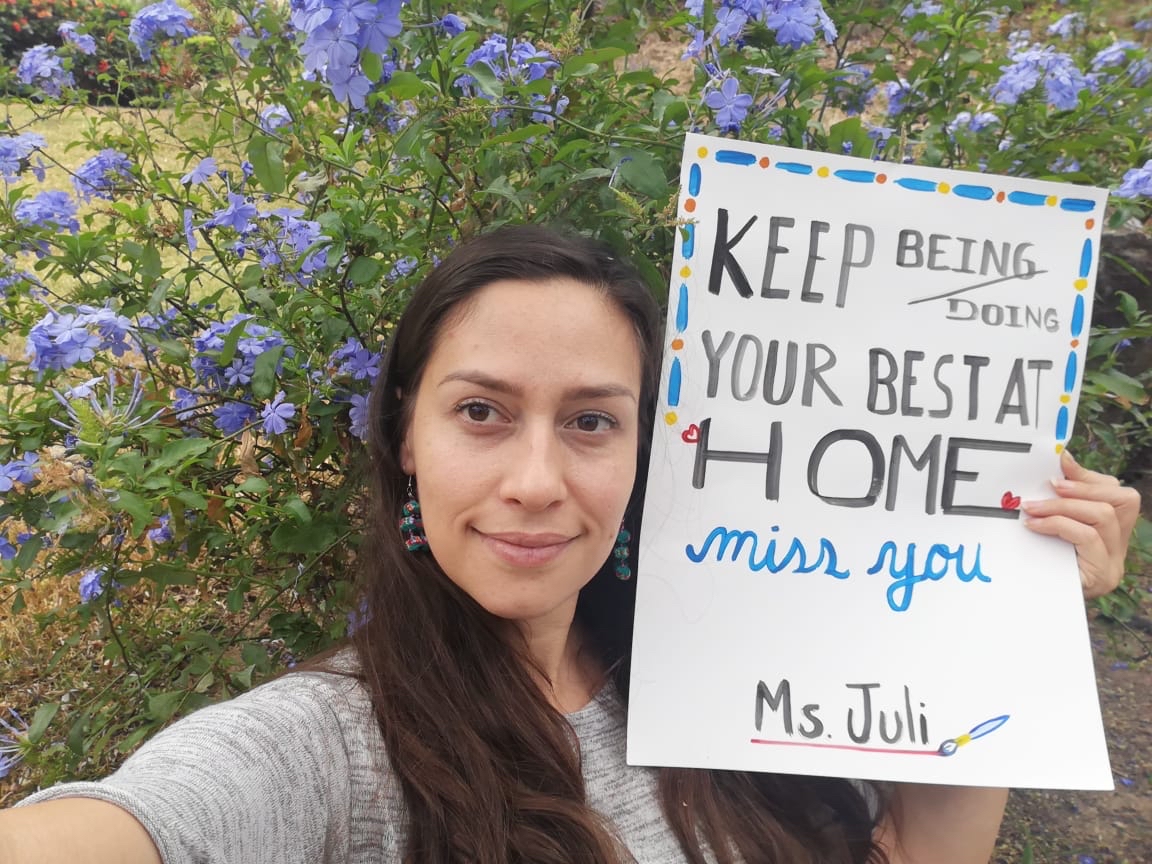 KEEP BEING/DOING
YOUR BEST AT
HOME.
miss you
Ms. Juli